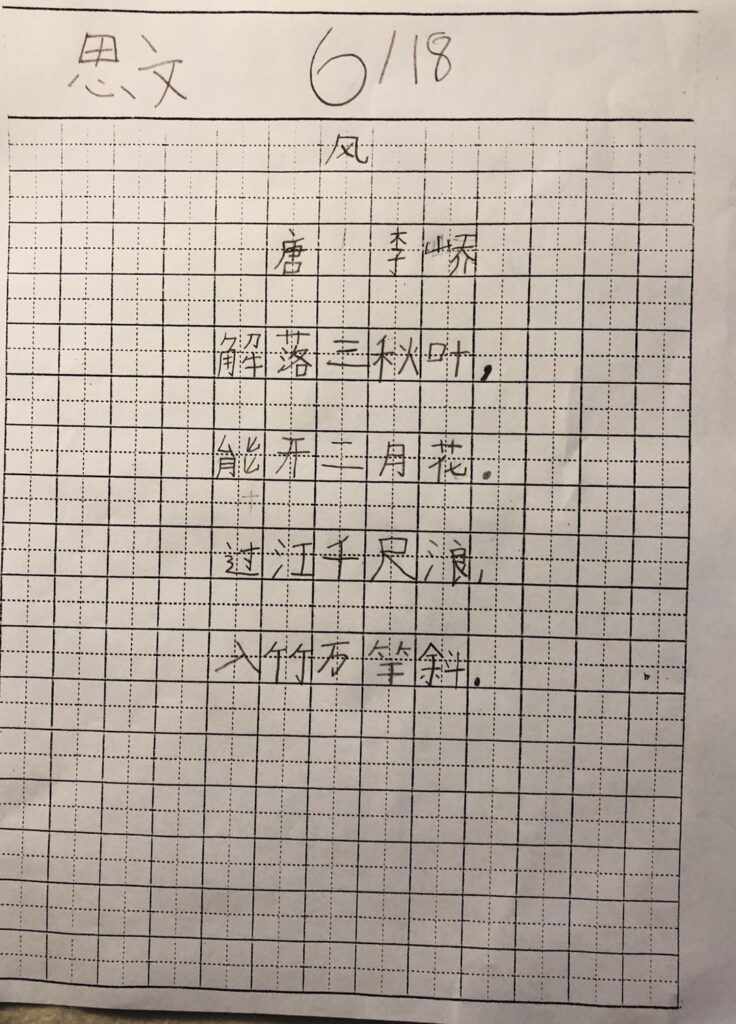 思文 6/18
风
唐 李峤
解落三秋叶，
能开二月花.
过江千尺浪,
入竹万竿斜.